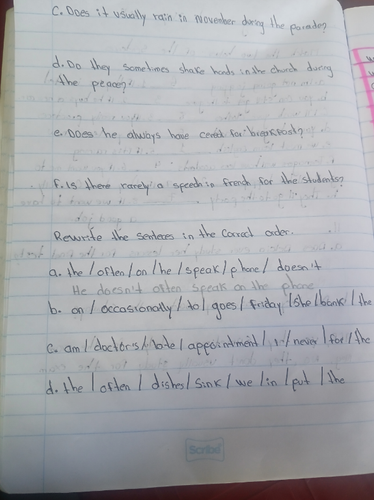 c. Does it usually rain in November during the parade?
d. Do they sometimes shake hands in the church during
the peace?
e. Does he always have cereal for breakfast?
f. Is there rarely a speech in french for the students?
Rewrite the sentences in the correct order.
a. the / often / on / he / speak / phone / doesn't
He doesn't often speak on the phone
b. on / occasionally / to / goes / Friday / she / bank / the
c. am / doctor's / late / appointment / I / never / for / the
d. the / often / dishes / sink / we / in / put / the
Scribe